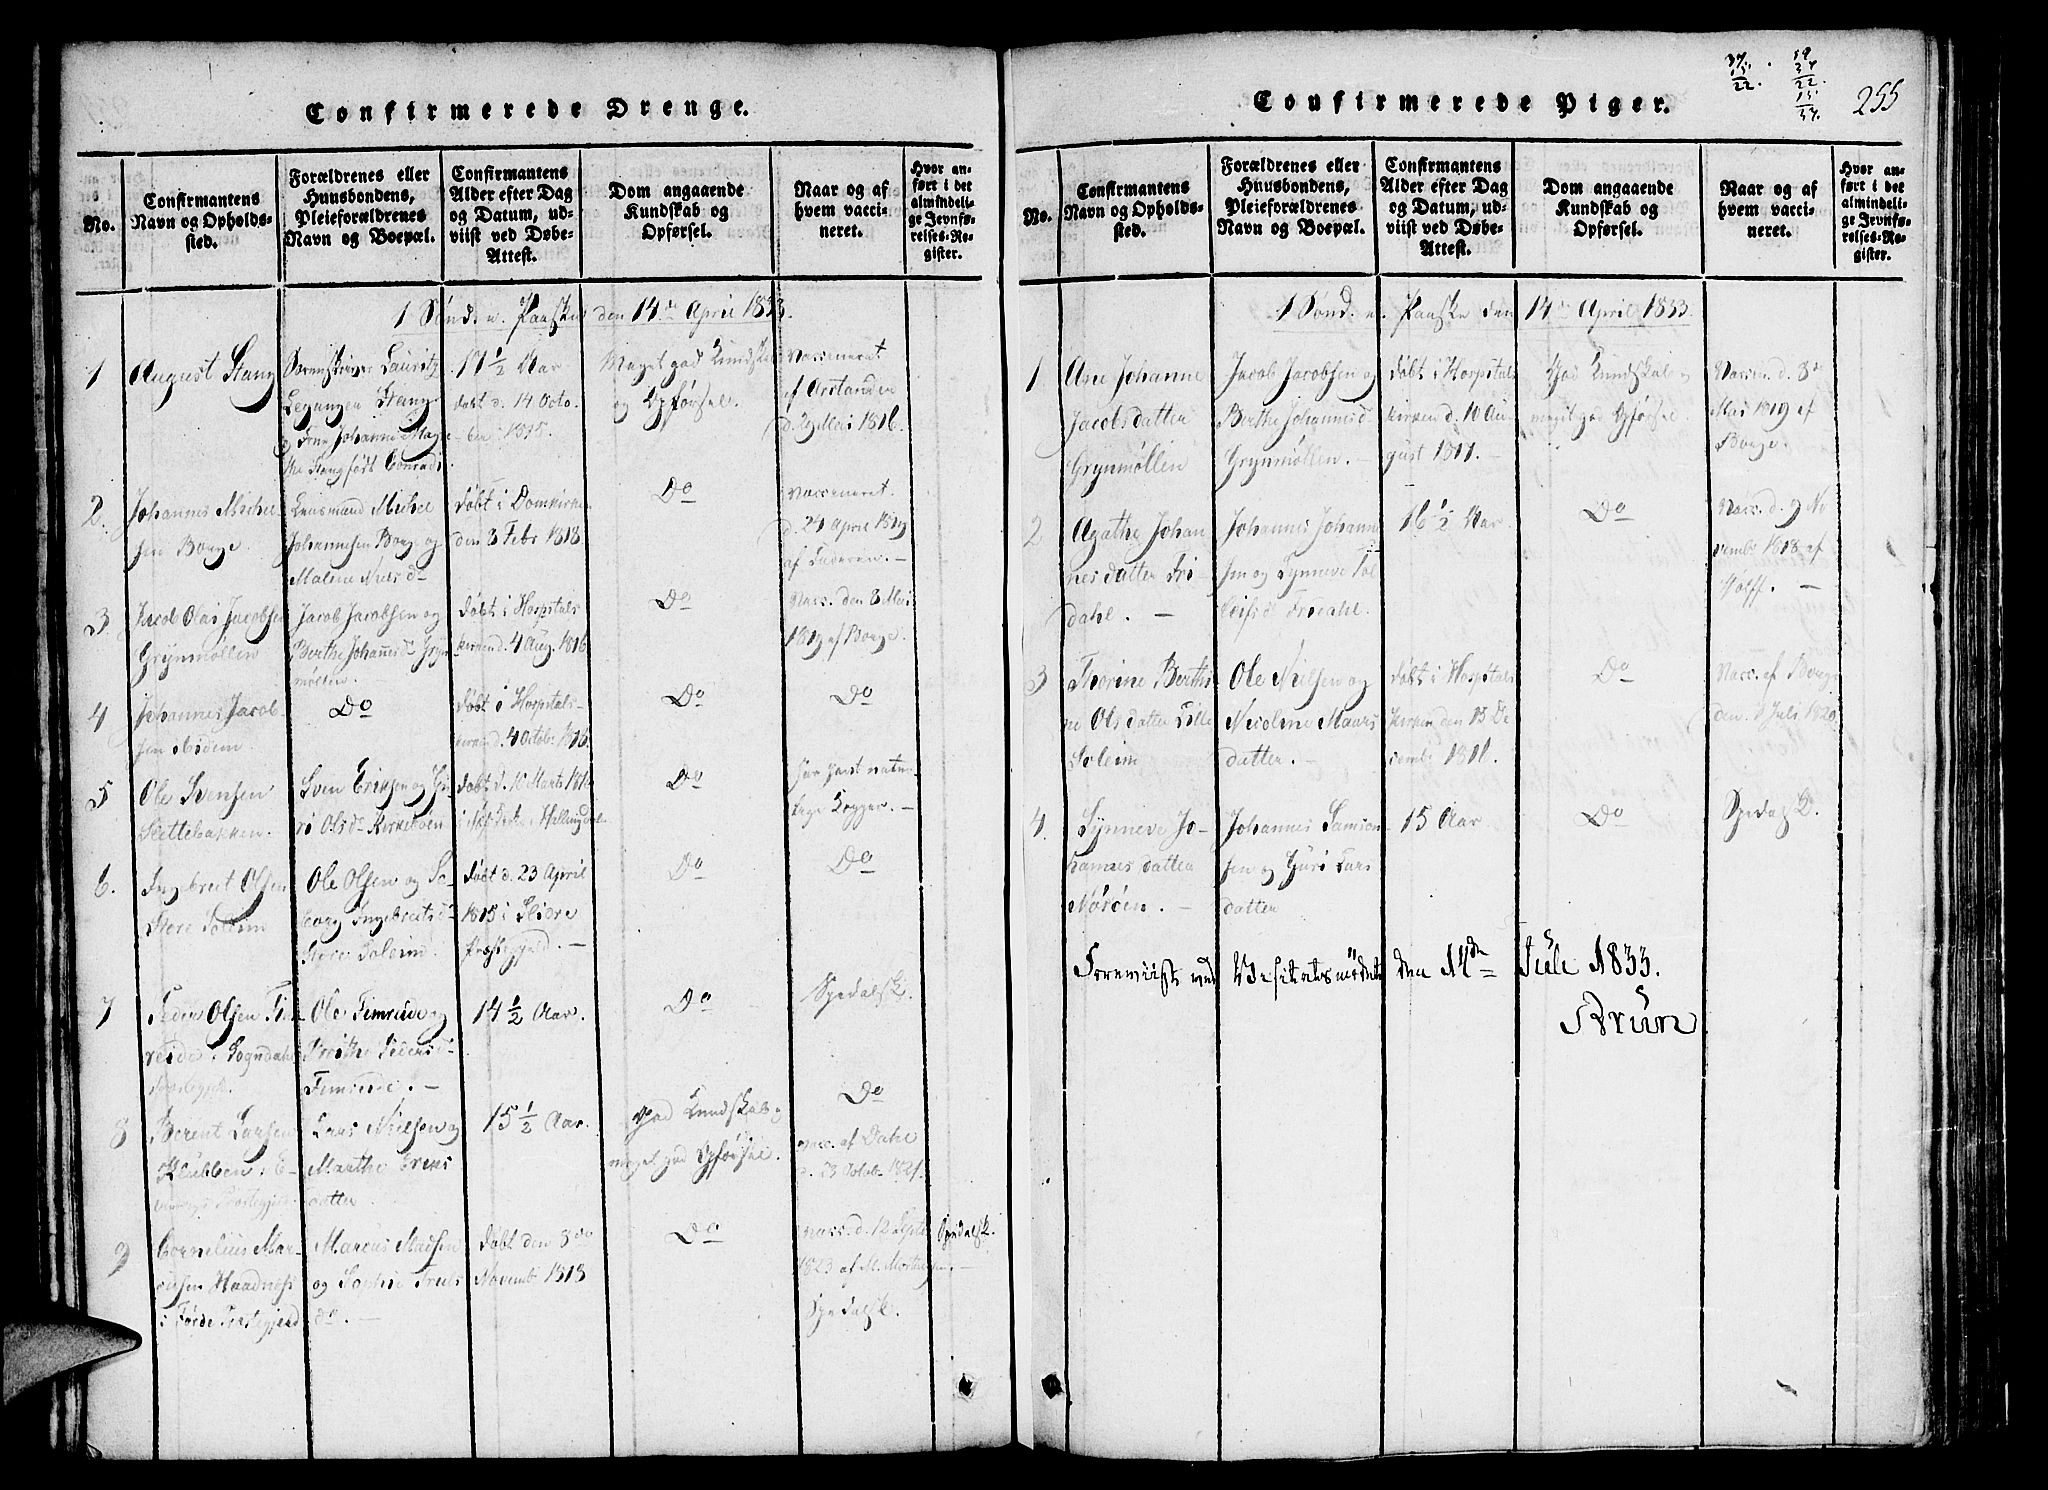 Confirmerede Drenge.
No.
Confirmantens
Navn og Opholds-
sted.
Forældrenes eller
Huusbondens,
Pleieforældrenes
Navn og Boepæl.
Confirmantens
Alder efter Dag
og Datum, ud-
viist ved Døbe-
Attest.
Dom angaaende
Kundskab og
Opførsel.
Naar og af
hvem vacci-
neret.
Hvor an-
ført i det
almindeli-
ge Jevnfø-
relses-Re-
gister.
1 Sønd. e. Paaske den 14de April 1833.
1
August Stang
Sorenskriver Lauritz
Leganger Stang
og Frue Johanne Mag-
the Stang født Conradi
17 1/2 Aar
døbt d. 14 Octo-
ber 1815.
Meget god Kundskab
og Opførsel.
Vaccineret
d. 29 Mai 1816.
2.
Johannes Michel
sen Borge.
Lensmand Michel
Johannesen Borge og
Malene Nielsd-
døbt i Domkirken
den 8 Febr 1818
Do
Vaccineret
d. 24 April 1819
af Faderen. -
3
Jacob Olai Jacobsen
Grynmøllen
Jacob Jacobsen og
Berthe Johannsd- Gryn
møllen.
døbt i Hospitals
kirken d. 4 Aug. 1816
Do
Vacc. den 8 Mai
1819 af Borge.
4
Johannes Jacob-
sen ibidem
Do
døbt i Hospitals-
kirken d. 4 October 1816
Do
Do
5
Ole Svensen
Slettebakken.
Sven Eriksen og Gu
ri Olsd- Kirkebøen
døbt d. 10 Marts 1816
Do
har havt natur-
lige Kopper. -
6.
Ingebret Olsen
Store Soleim
Ole Olsen og
Ingebretsd-
Store Soleim.
døbt d. 23 April
1815 i Slidre
Præstegjeld. -
Do
Do
7
Peder Olsen Fim-
reide i Sogndals
Præstegjeld.
Ole Fimreide og
Brithe Pedersd-
Fimreide. -
14 1/2 Aar.
Do
Spedalsk.
8
Berent Larsen
Klubben i E-
Præstegjeld.
Lars Nielsen og
Marthe
datter
15 1/2 Aar.
God Kundskab og
meget god Opførsel.
Do
Vacc. af Dahl
d. 23 Octob. 1821.
9
Cornelius Mar-
cusen Haadnæss
i Førde Præstegjeld
Marcus Madsen
og Sophie Truls
do. -
døbt den 8de
Novemb 1818
Do
Vacc. d. 12 Septb
1823 af M. Mortensen. -
Spedalsk.
Spedalsk.
Confirmerede Piger.
37.
15
22.
59
37
22.
15
37.
255
No.
Confirmantens
Navn og Opholds-
sted.
Forældrenes eller
Huusbondens,
Pleieforældrenes
Navn og Boepæl.
Confirmantens
Alder efter Dag
og Datum, ud-
viist ved Døbe-
Attest.
Dom angaaende
Kundskab og
Opførsel.
Naar og af
hvem vacci-
neret.
Hvor an-
ført i det
almindeli-
ge Jevnfø-
relses-Re-
gister.
1 Sønd. e. Paaske den 14de April 1833.
1
Ane Johanne
Jacobsdatter
Grynmøllen
Jacob Jacobsen og
Berthe Johannesd
Grynmøllen. -
døbt i Hospitals
kirken d. 10 Au-
gust 1817. -
God Kundskab og
meget god Opførsel
Vaccen. d. 8de
Mai 1819 af
Borge.
2
Agathe Johan
nesdatter Fri-
dahl. -
Johannes Johanne
sen og Synneve Tol
leifsd Fridahl.
16 1/2 Aar.
Do
Vacc. d. 9 No
vembr 1818 af
Wolff. -
3
Thorine Berthi
ne Olsdatter Lille
Soleim
Ole Nielsen og
Nicoline Maars
datter. -
døbt i Hospitals
kirken den 15 De
cembr 1816.
Do
Vacc. af Borge
den 1 Juli 1820
4.
Synneve Jo-
hannesdatter
Mørøen. -
Johannes Samson
sen og Guri Lars
datter
15 Aar
Do
Spedalsk.
Foreviist ved Visitatsmødet den 14de Juli 1833.
Brun